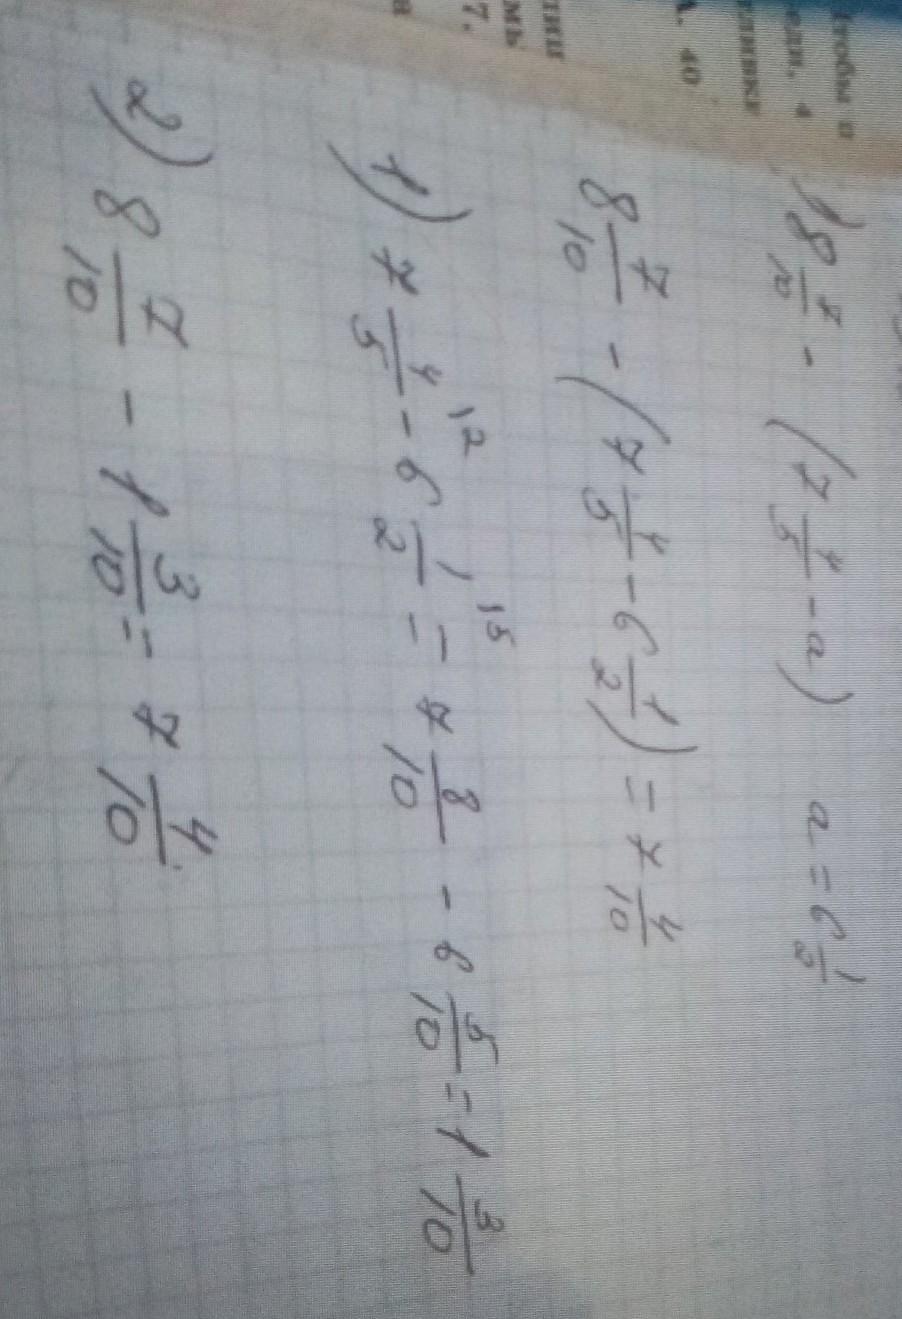 8 7/10 - (7 4/5 - a) a = 6 1/2
8 7/10 - (7 4/5 - 6 1/2) = 7 4/10
1) 7 4/5 ^12 - 6 1/2 ^15 = 7 8/10 - 6 5/10 = 1 3/10
2) 8 7/10 - 1 3/10 = 7 4/10
4
40
7.